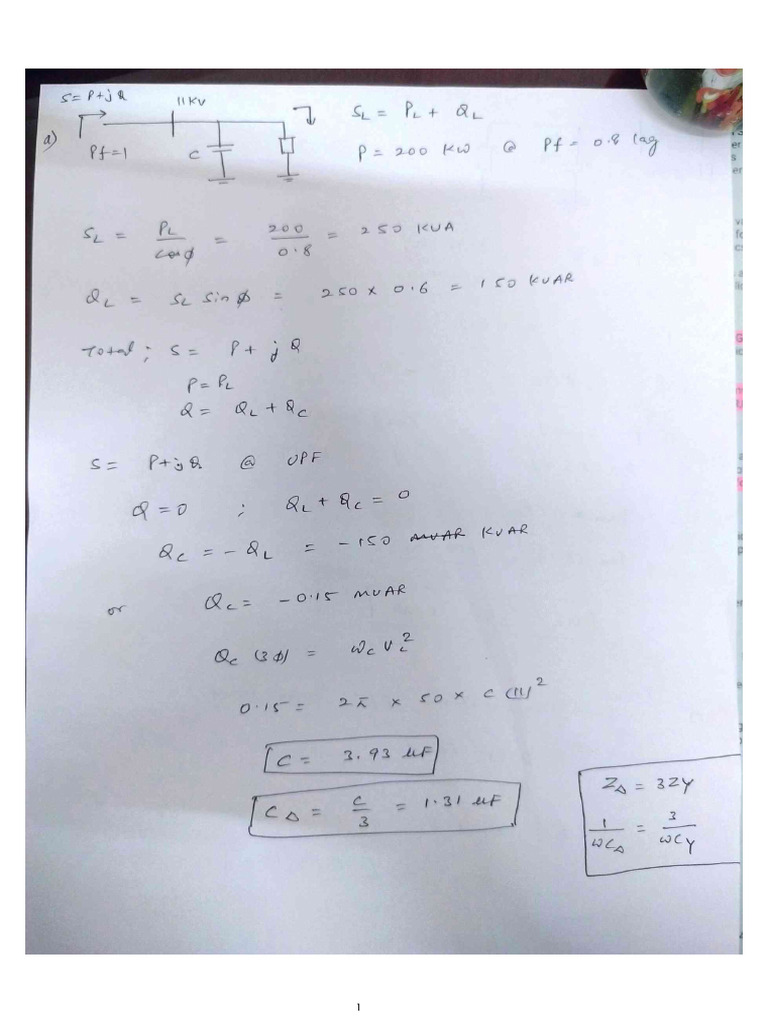 S = P+jQ
11KV
a)
Pf=1
C
SL = PL + QL
P = 200 KW @ Pf = 0.8 lag
SL = PL / cosφ = 200 / 0.8 = 250 KVA
QL = SL sinφ = 250 × 0.6 = 150 KVAR
Total; S = P + jQ
P = PL
Q = QL + QC
S = P+jQ @ UPF
Q = 0 ; QL + QC = 0
QC = - QL = -150 MVAR KVAR
or QC = -0.15 MVAR
QC (3φ) = ωC VL²
0.15 = 2π × 50 × C (11)²
C = 3.93 μF
CΔ = C / 3 = 1.31 μF
ZΔ = 3ZY
1 / ωCΔ = 3 / ωCY
1